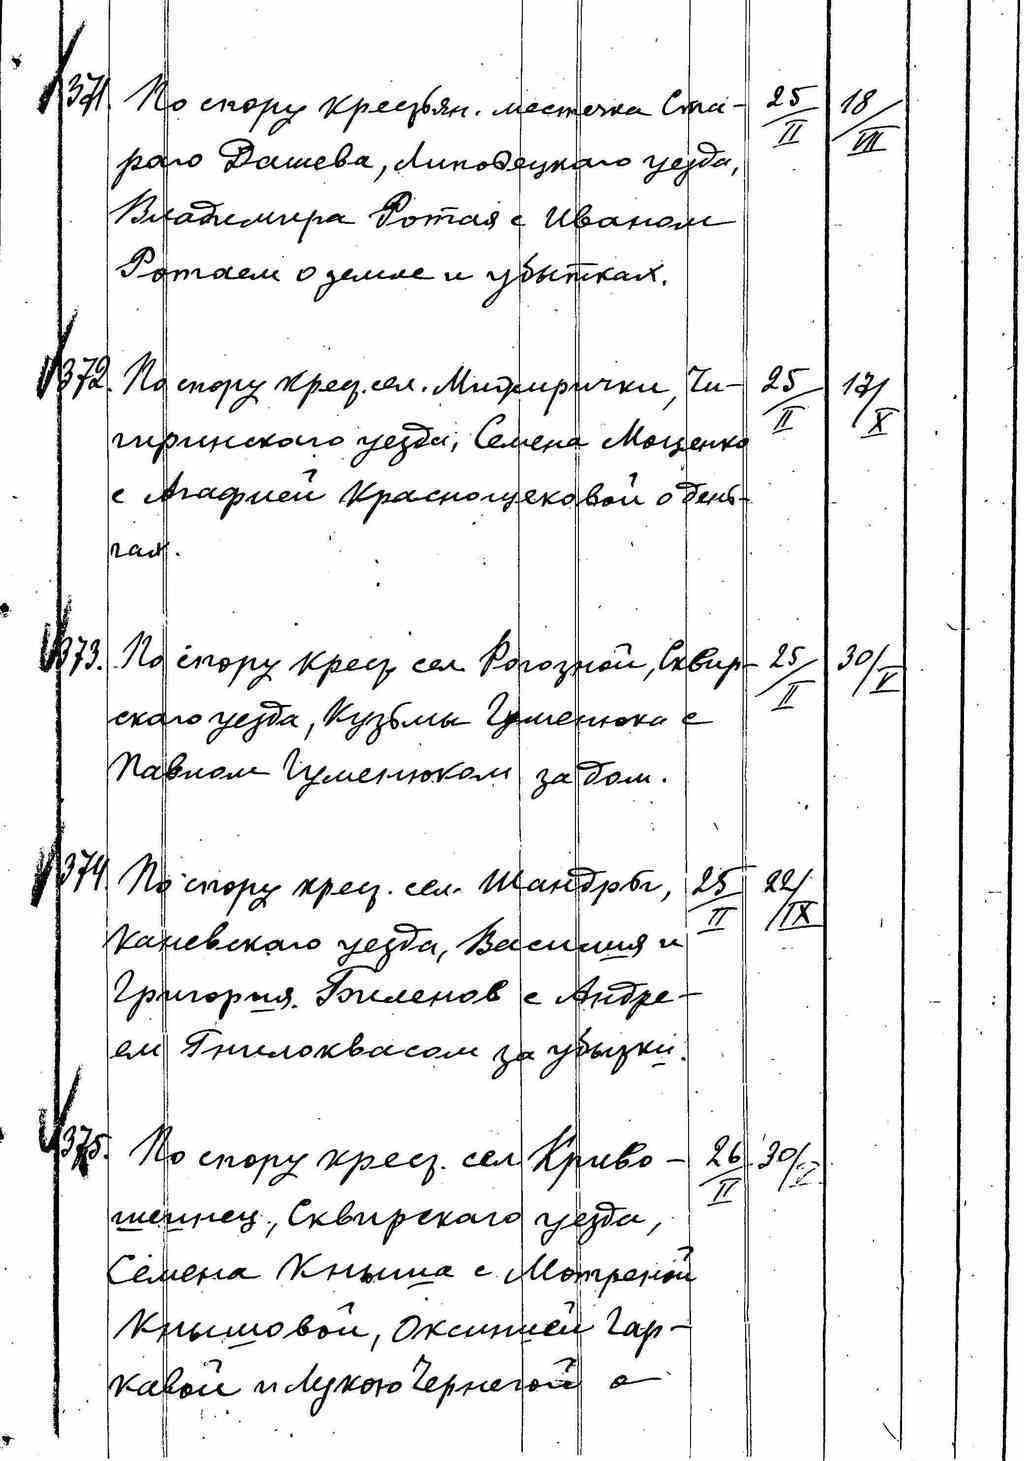 371. По спору крестьян. местечка Ста- 25/II 18/VIII
раго Дашева, Липовецкаго уезда,
Владимира Ротая с Иваном
Ротаем о земле и убытках.
372. По спору крест. сел. Чи- 25/II 17/X
гиринскаго уезда, Семена Моценко
с Агафией Краснощековой о день-
гах.
373. По спору крест. сел Рогозной, Сквир- 25/II 30/V
скаго уезда, Кузьмы Гуменюка с
Павлом Гуменюком за дом.
374. По спору крест. сел. Шандры, 25/II 22/IX
Каневскаго уезда, Василия и
Григория Биленов с Андре-
ем Гнилоквасом за убытки.
375. По спору крест. сел Криво- 26/II 30/V
шеинец, Сквирскаго уезда,
Семена Кныша с Мотреной
Кнышовой, Оксинией Гар-
кавой и Лукою Чернегой о